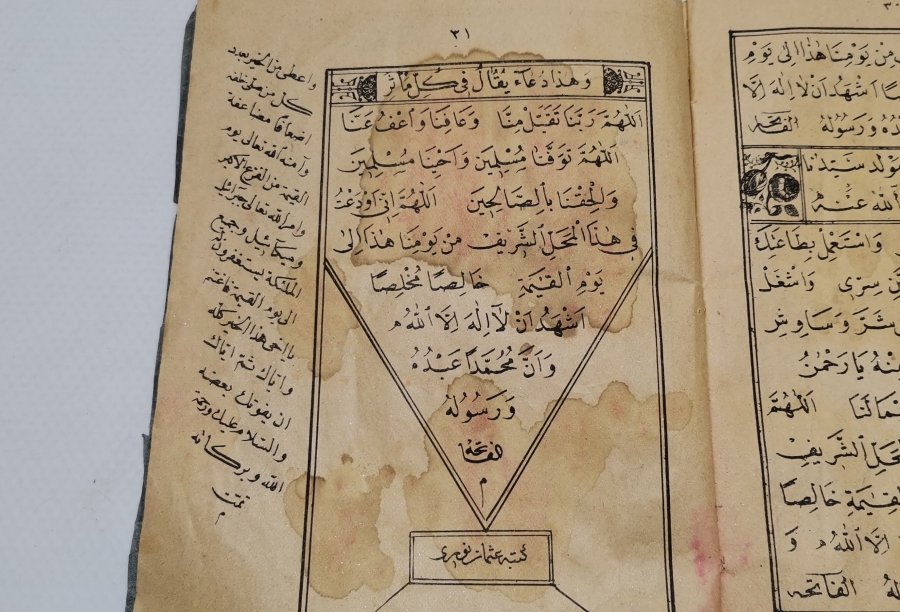 ٣١
وَهٰذَا دُعَاءٌ يُقَالُ فِي كُلِّ مَآثِرَ
اَللّٰهُمَّ رَبَّنَا تَقَبَّلْ مِنَّا وَعَافِنَا وَاعْفُ عَنَّا
اَللّٰهُمَّ تَوَفَّنَا مُسْلِمِينَ وَاَحْيِنَا مُسْلِمِينَ
وَاَلْحِقْنَا بِالصَّالِحِينَ اَللّٰهُمَّ اِنِّي اَوْدَعْتُ
فِي هٰذَا الْمَحَلِّ الشَّرِيفِ مِنْ يَوْمِنَا هٰذَا اِلٰى
يَوْمِ الْقِيٰمَةِ خَالِصًا مُخْلِصًا
اَشْهَدُ اَنْ لَا اِلٰهَ اِلَّا اللّٰهُ م
وَاَنَّ مُحَمَّدًا عَبْدُهُ
وَرَسُولُهُ
الفاتحة
م
كتبه عثمان نوري
واعطى من الخير بعدد
كل من صلى خلفه
اضعافا مضاعفة
وآمنه الله تعالى يوم
القيمة من الفزع الاكبر
وامر الله تعالى جبرائيل
وميكائيل وجميع
الملئكة يستغفرون له
الى يوم القيمة فاغتنم
يا اخى هذا الخير كله
واياك ثم اياك
ان يفوتك بعضه
والسلام عليك ورحمة
الله وبركاته
تمت
م
٣٠
مِنْ يَوْمِنَا هٰذَا اِلٰى يَوْمِ
اَشْهَدُ اَنْ لَا اِلٰهَ اِلَّا
وَرَسُولُهُ الفاتحة
سَيِّدِنَا
اللّٰهُ عَنْهُ
وَاسْتَعْمِلْ بِطَاعَتِكَ
سِرِّى وَاشْغَلْ
شَرَّ وَسَاوِسِ
يَا رَحْمٰنُ
اَللّٰهُمَّ
الشَّرِيفِ
الْقِيٰمَةِ خَالِصًا
اِلَّا اللّٰهُ م وَ
الفاتحة